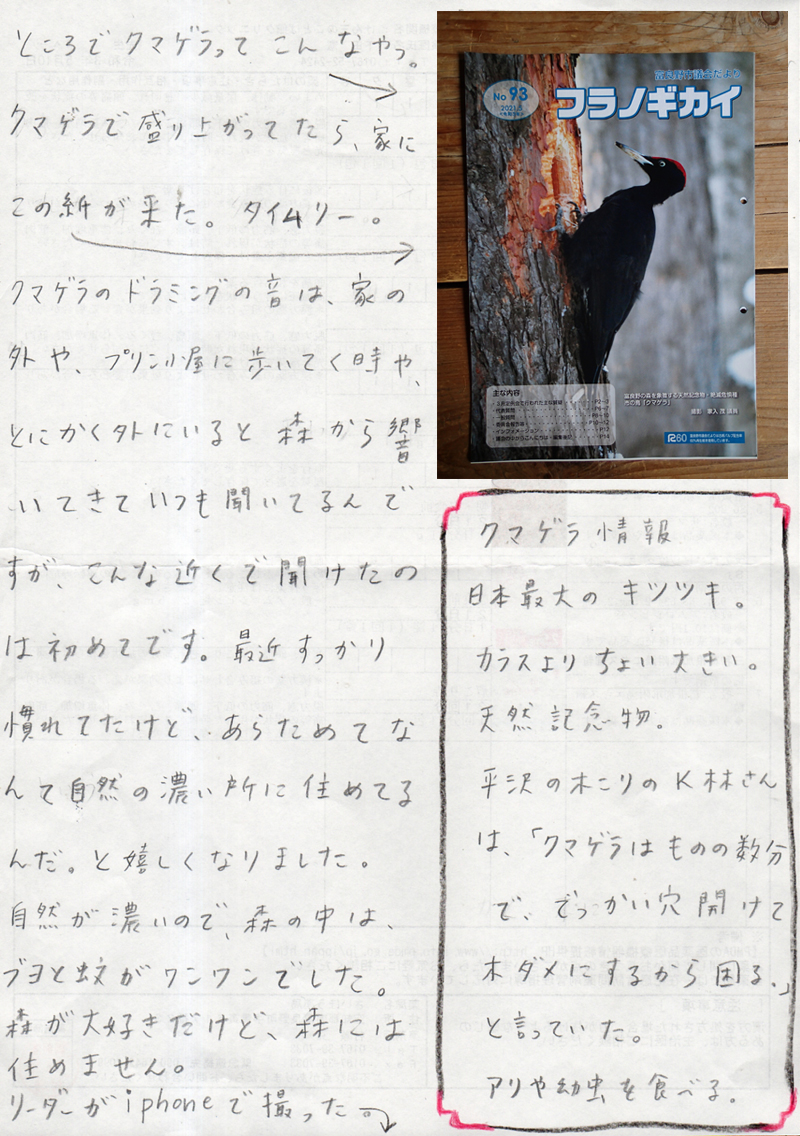 ところでクマゲラって こんなやつ。
クマゲラで盛り上がってたら、家に
この紙が来た。タイムリー。
クマゲラのドラミングの音は、家の
外や、プリン小屋に歩いてく時や、
とにかく外にいると 森から響
いてきていつも聞いてるんで
すが、こんな近くで聞けたの
は初めてです。最近すっかり
慣れてたけど、あらためてな
んて自然の濃い所に住めてる
んだ。と嬉しくなりました。
自然が濃いので、森の中は、
ブヨと蚊がワンワンでした。
森が大好きだけど、森には
住めません。
リーダーがiphoneで撮った。
富良野市議会だより
No 93
2021.5
フラノギカイ
主な内容
富良野の森を象徴する天然記念物・絶滅危惧種
市の鳥「クマゲラ」
R60
クマゲラ情報
日本最大の キツツキ。
カラスよりちょい大きい。
天然記念物。
平沢の木こりのK林さん
は、「クマゲラはものの数分
で、でっかい穴開けて
木ダメにするから困る。」
と言っていた。
アリや幼虫を食べる。